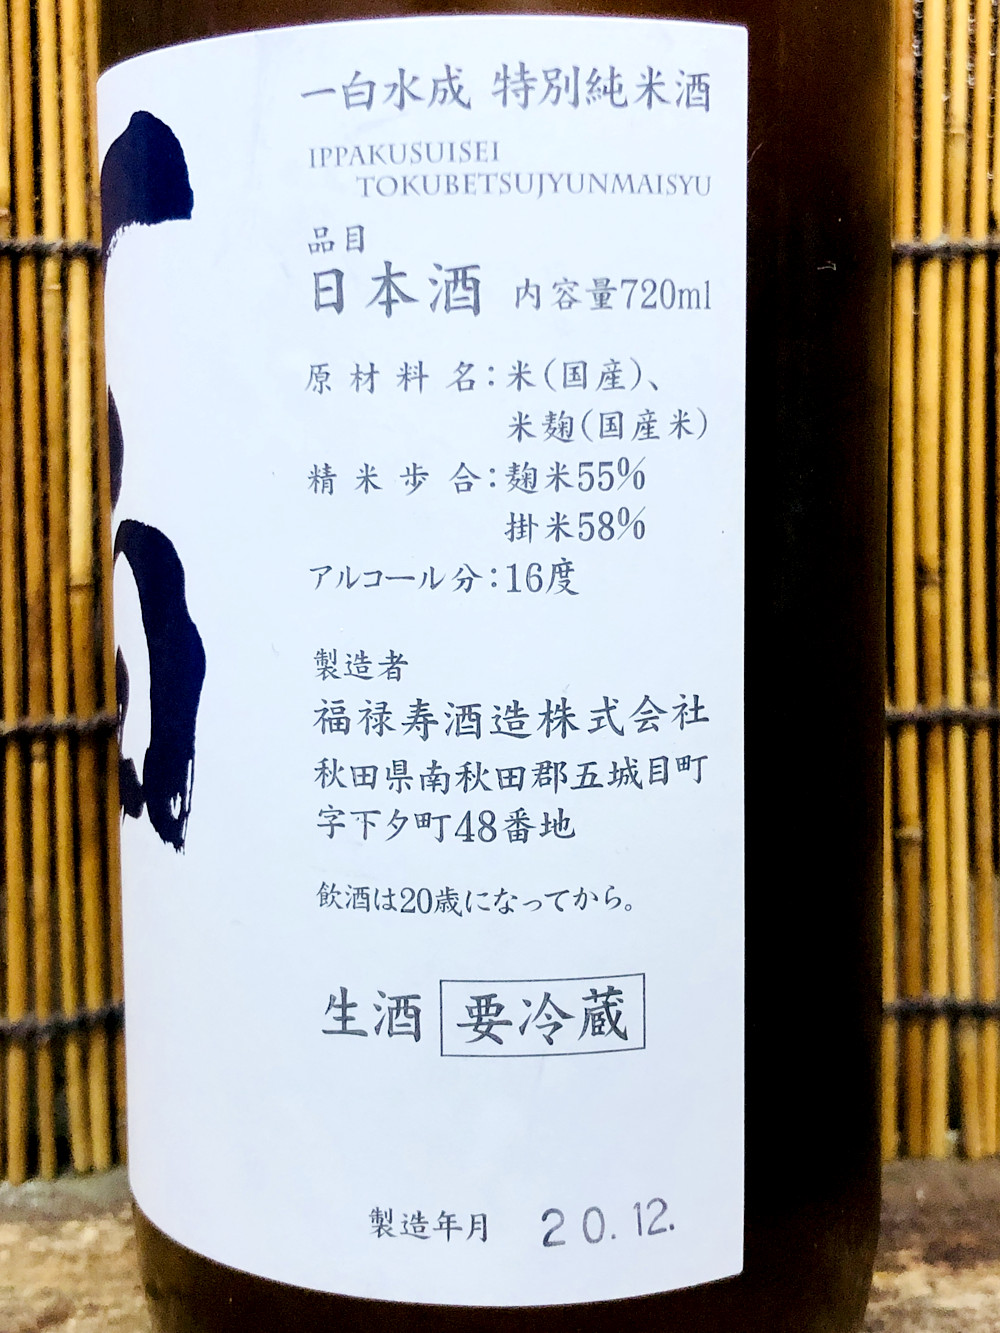 一白水成 特別純米酒
IPPAKUSUISEI
TOKUBETSUJYUNMAISYU
品目
日本酒 内容量720ml
原材料名：米（国産）、
米麹（国産米）
精米歩合：麹米55%
掛米58%
アルコール分：16度
製造者
福禄寿酒造株式会社
秋田県南秋田郡五城目町
字下夕町48番地
飲酒は20歳になってから。
生酒 要冷蔵
製造年月 20.12.